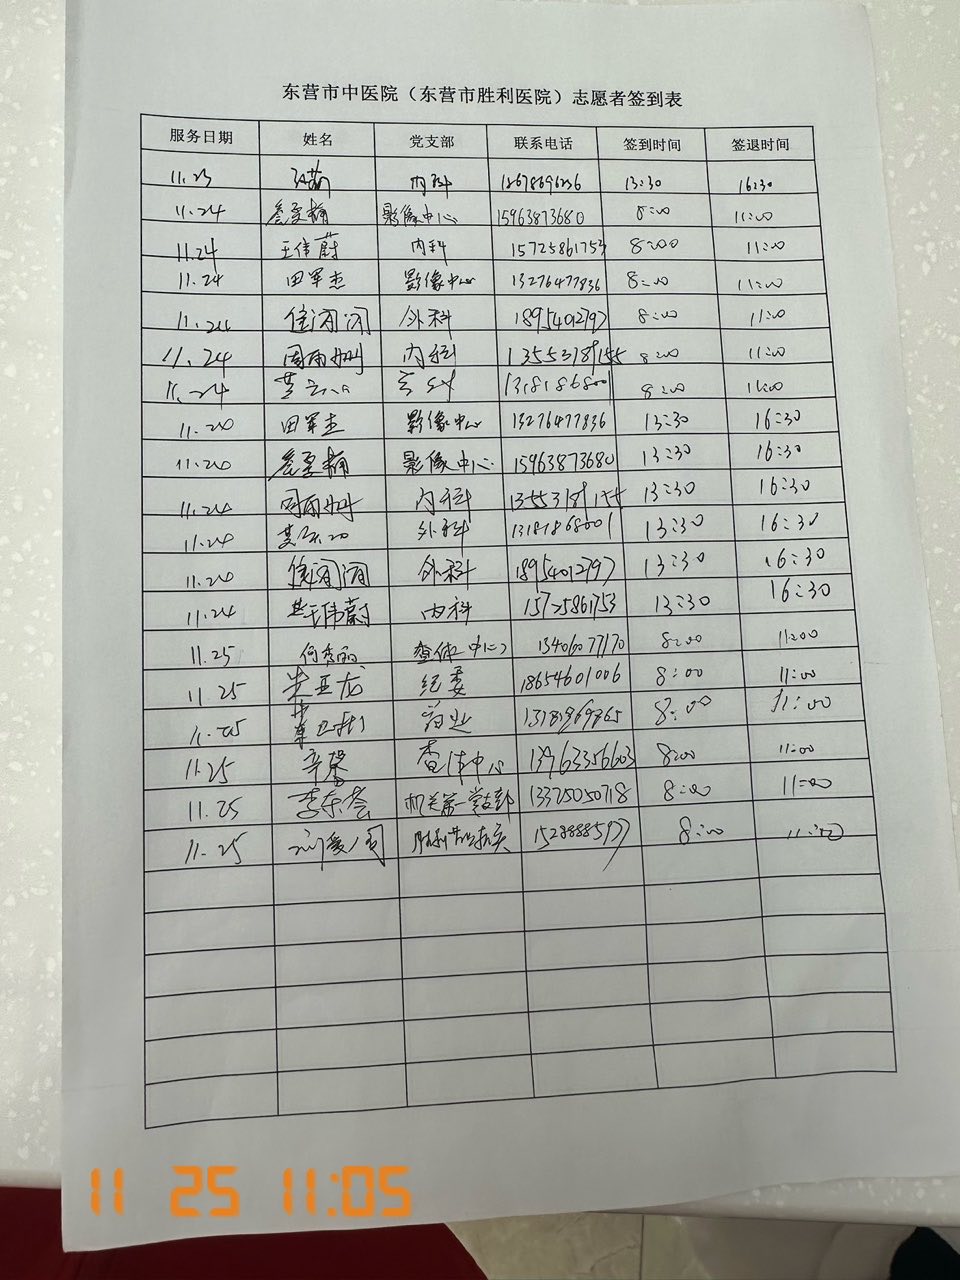 东营市中医院（东营市胜利医院）志愿者签到表
服务日期 姓名 党支部 联系电话 签到时间 签退时间
11.23 内科 13:30 16:30
11.24 影像中心 15963873680 8:00 11:00
11.24 王伟蔚 内科 15725861753 8:00 11:00
11.24 田军杰 影像中心 13276477836 8:00 11:00
11.24 外科 18954012797 8:00 11:00
11.24 周雨姗 内科 13553181155 8:00 11:00
11.24 13181868001 8:00 11:00
11.24 田军杰 影像中心 13276477836 13:30 16:30
11.24 影像中心 15963873680 13:30 16:30
11.24 周雨姗 内科 13553181155 13:30 16:30
11.24 外科 13181868001 13:30 16:30
11.24 外科 18954012797 13:30 16:30
11.24 王伟蔚 内科 15725861753 13:30 16:30
11.25 何秀丽 查体中心 13406077170 8:00 11:00
11.25 朱亚龙 纪委 18654601006 8:00 11:00
11.25 13181969865 8:00 11:00
11.25 辛馨 查体中心 13963356603 8:00 11:00
11.25 李东荟 机关第一党支部 13325050718 8:00 11:00
11.25 8:00 11:00
11 25 11:05